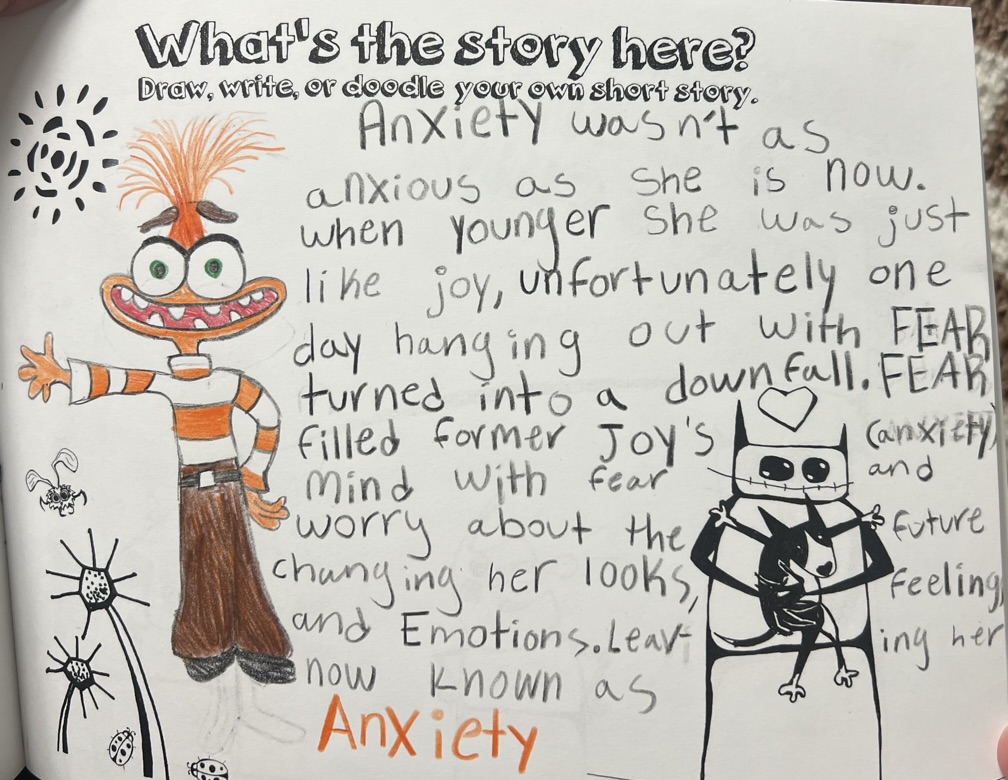 What's the story here?
Draw, write, or doodle your own short story.
Anxiety wasn't as
anxious as she is now.
when younger she was just
like joy, unfortunately one
day hanging out with FEAR
turned into a downfall. FEAR
filled former Joy's (anxiety)
mind with fear and
worry about the future
changing her looks, feeling,
and Emotions. Leav- ing her
now known as
Anxiety